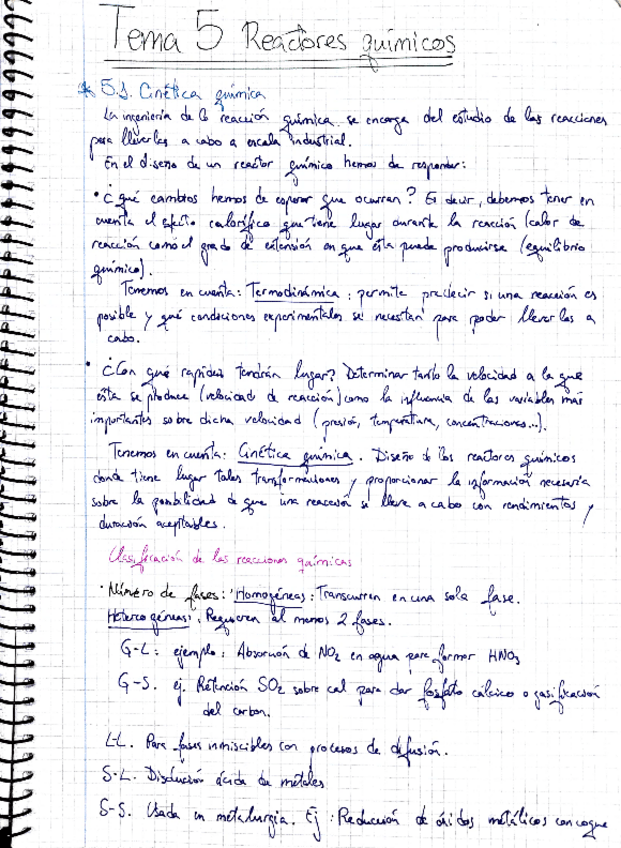 Tema 5 Reactores químicos
* 5.1. Cinética química
La ingeniería de la reacción química se encarga del estudio de las reacciones
para llevarlas a cabo a escala industrial.
En el diseño de un reactor químico hemos de responder:
• ¿Qué cambios hemos de esperar que ocurran? Es decir, debemos tener en
cuenta el efecto calorífico que tiene lugar durante la reacción (calor de
reacción como el grado de extensión en que ésta puede producirse (equilibrio
químico).
Tenemos en cuenta: Termodinámica: permite predecir si una reacción es
posible y qué condiciones experimentales se necesitan para poder llevarlas a
cabo.
• ¿Con qué rapidez tendrán lugar? Determinar tanto la velocidad a la que
ésta se produce (velocidad de reacción) como la influencia de las variables más
importantes sobre dicha velocidad (presión, temperatura, concentraciones...).
Tenemos en cuenta: Cinética química. Diseño de los reactores químicos
donde tiene lugar tales transformaciones y proporcionar la información necesaria
sobre la posibilidad de que una reacción se lleve a cabo con rendimientos y
duración aceptables.
Clasificación de las reacciones químicas
• Número de fases: Homogéneas: Transcurren en una sola fase.
Heterogéneas: Requieren al menos 2 fases.
G-L: ejemplo: Absorción de NO2 en agua para formar HNO3
G-S. ej. Retención SO2 sobre cal para dar fosfato cálcico o gasificación
del carbon.
L-L. Para fases inmiscibles con procesos de difusión.
S-L. Disolución ácida de metales
S-S. Usada en metalurgia. Ej: Reducción de óxidos metálicos con coque